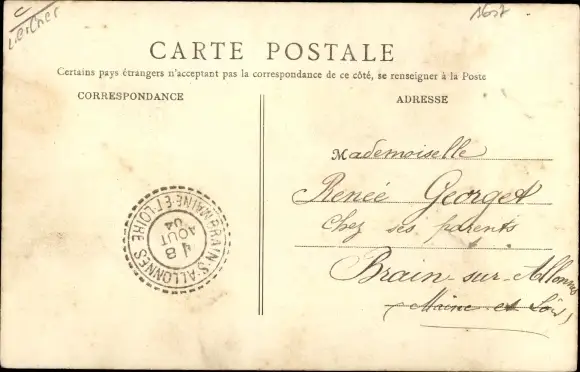 CARTE POSTALE
Certains pays étrangers n'acceptant pas la correspondance de ce côté, se renseigner à la Poste
CORRESPONDANCE
ADRESSE
Mademoiselle
Renée Georget
Chez ses parents
Brain-sur-Allonnes
(Maine et Loire)
BRAIN-S-ALLONNES
MAINE-ET-LOIRE
18
AOUT
04